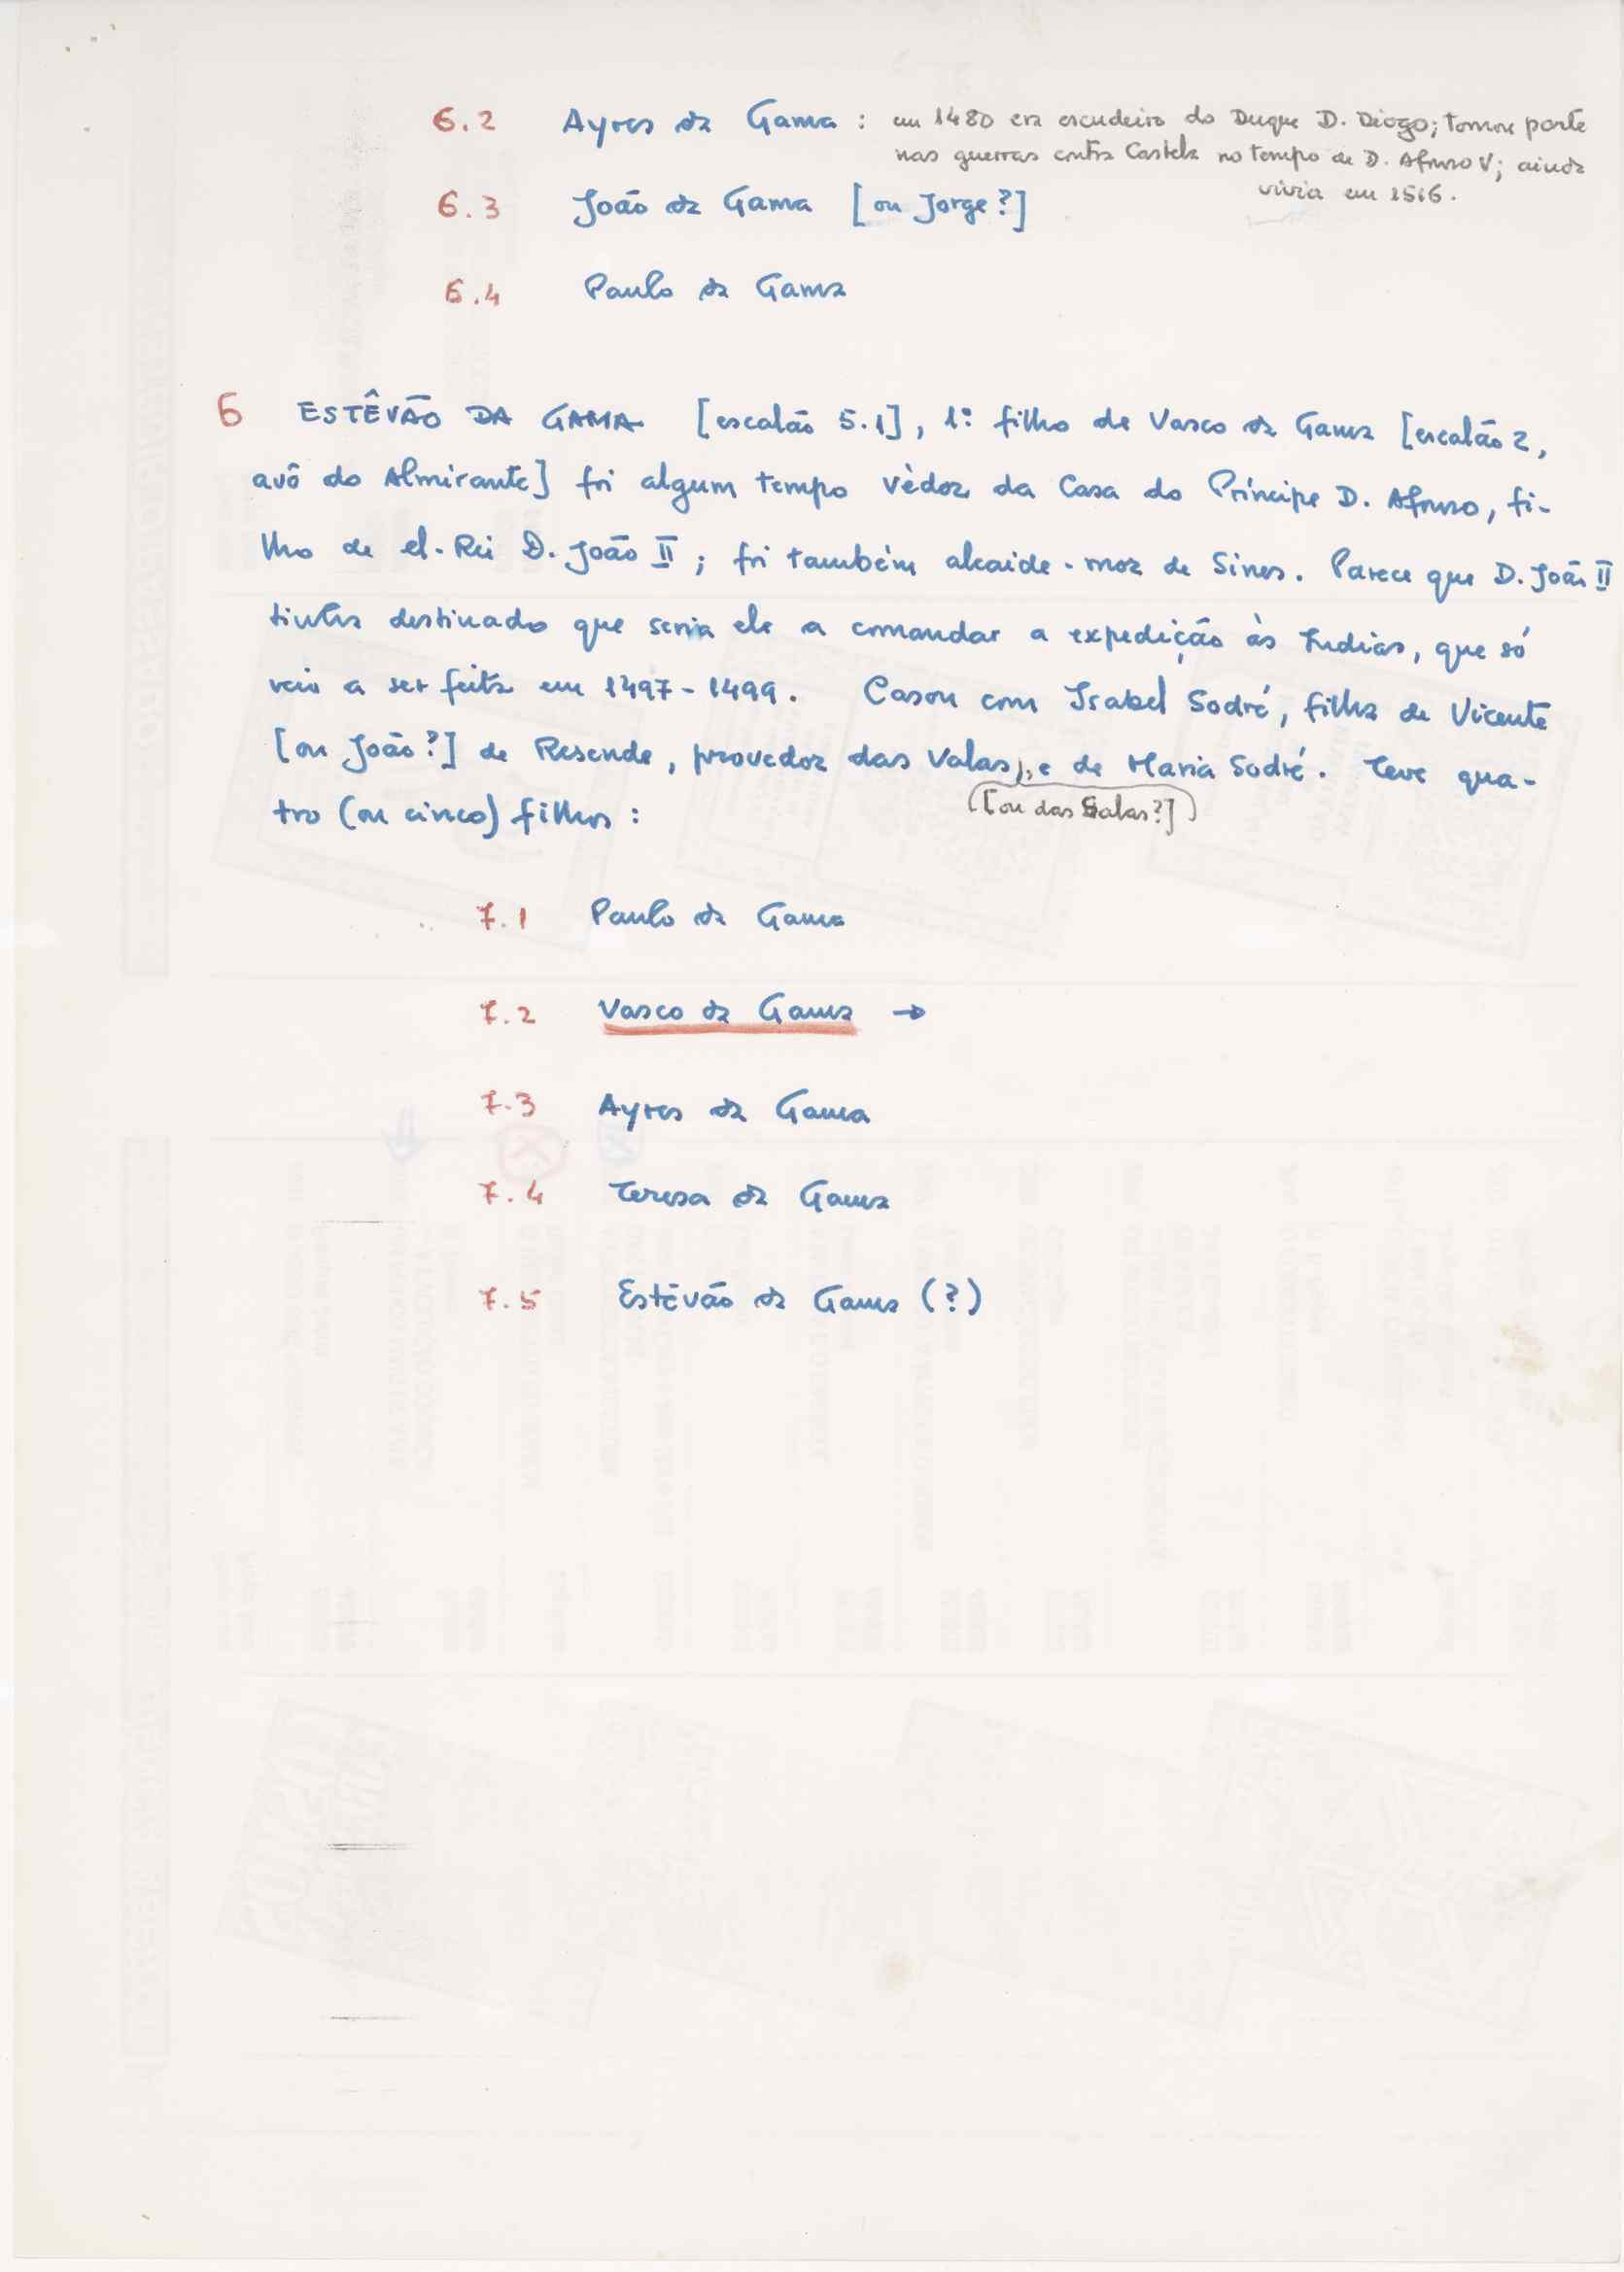 6.2 Ayres da Gama : em 1480 era escudeiro do Duque D. Diogo; tomou parte
nas guerras contra Castela no tempo de D. Afonso V; ainda
vivia em 1516.
6.3 João da Gama [ou Jorge?]
6.4 Paulo da Gama
6 ESTÊVÃO DA GAMA [escalão 5.1], 1º filho de Vasco da Gama [escalão 2,
avô do Almirante] foi algum tempo vèdor da Casa do Príncipe D. Afonso, fi-
lho de el-Rei D. João II ; foi também alcaide-mor de Sines. Parece que D. João II
tinha destinado que seria ele a comandar a expedição às Indias, que só
veio a ser feita em 1497-1499. Casou com Isabel Sodré, filha de Vicente
[ou João?] de Resende, provedor das Valas, e de Maria Sodré. Teve qua-
([ou das Salas?])
tro (ou cinco) filhos :
7.1 Paulo da Gama
7.2 Vasco da Gama →
7.3 Ayres da Gama
7.4 Teresa da Gama
7.5 Estêvão da Gama (?)